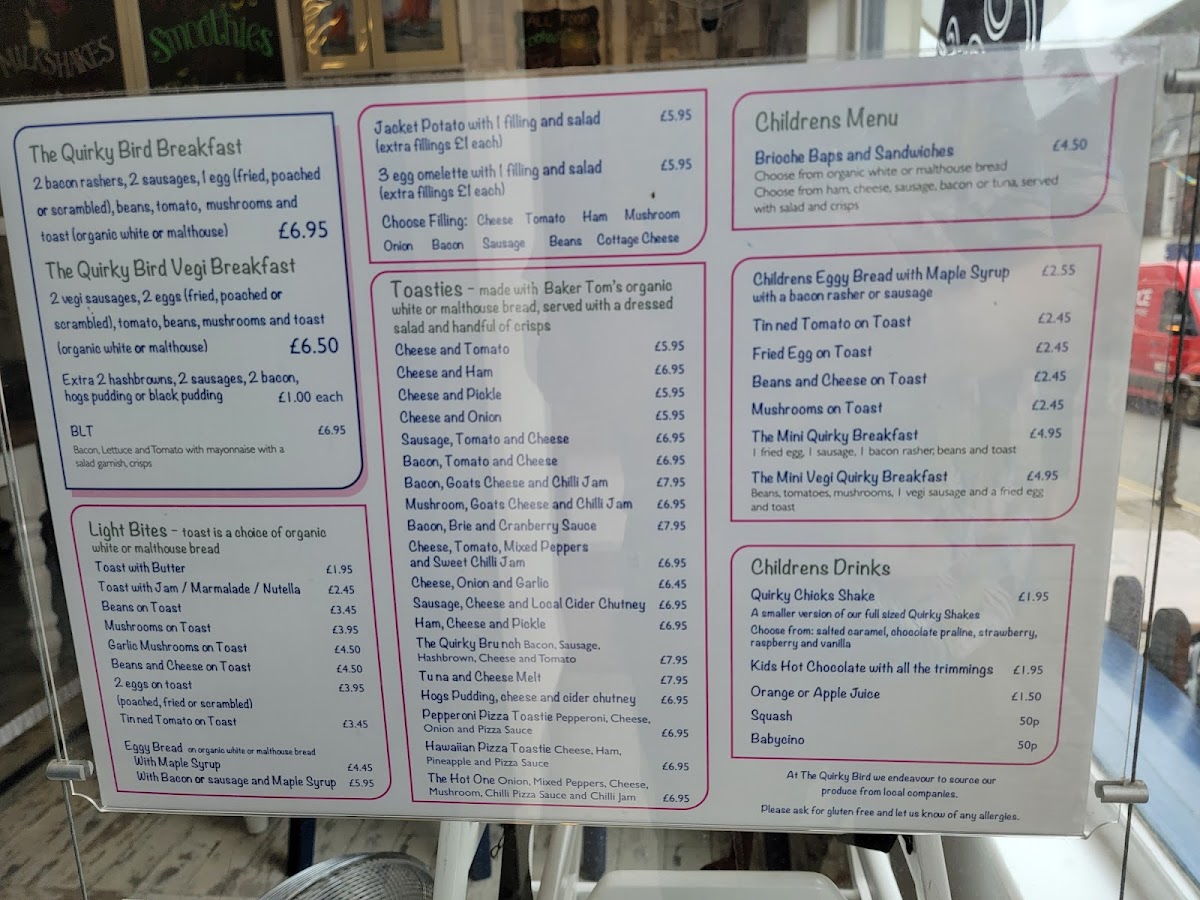 MILKSHAKES
Smoothies
ALL FOOD
The Quirky Bird Breakfast
2 bacon rashers, 2 sausages, 1 egg (fried, poached
or scrambled), beans, tomato, mushrooms and
toast (organic white or malthouse) £6.95
The Quirky Bird Vegi Breakfast
2 vegi sausages, 2 eggs (fried, poached or
scrambled), tomato, beans, mushrooms and toast
(organic white or malthouse) £6.50
Extra 2 hashbrowns, 2 sausages, 2 bacon,
hogs pudding or black pudding £1.00 each
BLT £6.95
Bacon, Lettuce and Tomato with mayonnaise with a
salad garnish, crisps
Light Bites - toast is a choice of organic
white or malthouse bread
Toast with Butter £1.95
Toast with Jam / Marmalade / Nutella £2.45
Beans on Toast £3.45
Mushrooms on Toast £3.95
Garlic Mushrooms on Toast £4.50
Beans and Cheese on Toast £4.50
2 eggs on toast £3.95
(poached, fried or scrambled)
Tinned Tomato on Toast £3.45
Eggy Bread on organic white or malthouse bread
With Maple Syrup £4.45
With Bacon or sausage and Maple Syrup £5.95
Jacket Potato with 1 filling and salad £5.95
(extra fillings £1 each)
3 egg omelette with 1 filling and salad £5.95
(extra fillings £1 each)
Choose Filling: Cheese Tomato Ham Mushroom
Onion Bacon Sausage Beans Cottage Cheese
Toasties - made with Baker Tom's organic
white or malthouse bread, served with a dressed
salad and handful of crisps
Cheese and Tomato £5.95
Cheese and Ham £6.95
Cheese and Pickle £5.95
Cheese and Onion £5.95
Sausage, Tomato and Cheese £6.95
Bacon, Tomato and Cheese £6.95
Bacon, Goats Cheese and Chilli Jam £7.95
Mushroom, Goats Cheese and Chilli Jam £6.95
Bacon, Brie and Cranberry Sauce £7.95
Cheese, Tomato, Mixed Peppers
and Sweet Chilli Jam £6.95
Cheese, Onion and Garlic £6.45
Sausage, Cheese and Local Cider Chutney £6.95
Ham, Cheese and Pickle £6.95
The Quirky Brunch Bacon, Sausage,
Hashbrown, Cheese and Tomato £7.95
Tuna and Cheese Melt £7.95
Hogs Pudding, cheese and cider chutney £6.95
Pepperoni Pizza Toastie Pepperoni, Cheese,
Onion and Pizza Sauce £6.95
Hawaiian Pizza Toastie Cheese, Ham,
Pineapple and Pizza Sauce £6.95
The Hot One Onion, Mixed Peppers, Cheese,
Mushroom, Chilli Pizza Sauce and Chilli Jam £6.95
Childrens Menu
Brioche Baps and Sandwiches £4.50
Choose from organic white or malthouse bread
Choose from ham, cheese, sausage, bacon or tuna, served
with salad and crisps
Childrens Eggy Bread with Maple Syrup £2.55
with a bacon rasher or sausage
Tinned Tomato on Toast £2.45
Fried Egg on Toast £2.45
Beans and Cheese on Toast £2.45
Mushrooms on Toast £2.45
The Mini Quirky Breakfast £4.95
1 fried egg, 1 sausage, 1 bacon rasher, beans and toast
The Mini Vegi Quirky Breakfast £4.95
Beans, tomatoes, mushrooms, 1 vegi sausage and a fried egg
and toast
Childrens Drinks
Quirky Chicks Shake £1.95
A smaller version of our full sized Quirky Shakes
Choose from: salted caramel, chocolate praline, strawberry,
raspberry and vanilla
Kids Hot Chocolate with all the trimmings £1.95
Orange or Apple Juice £1.50
Squash 50p
Babycino 50p
At The Quirky Bird we endeavour to source our
produce from local companies.
Please ask for gluten free and let us know of any allergies.